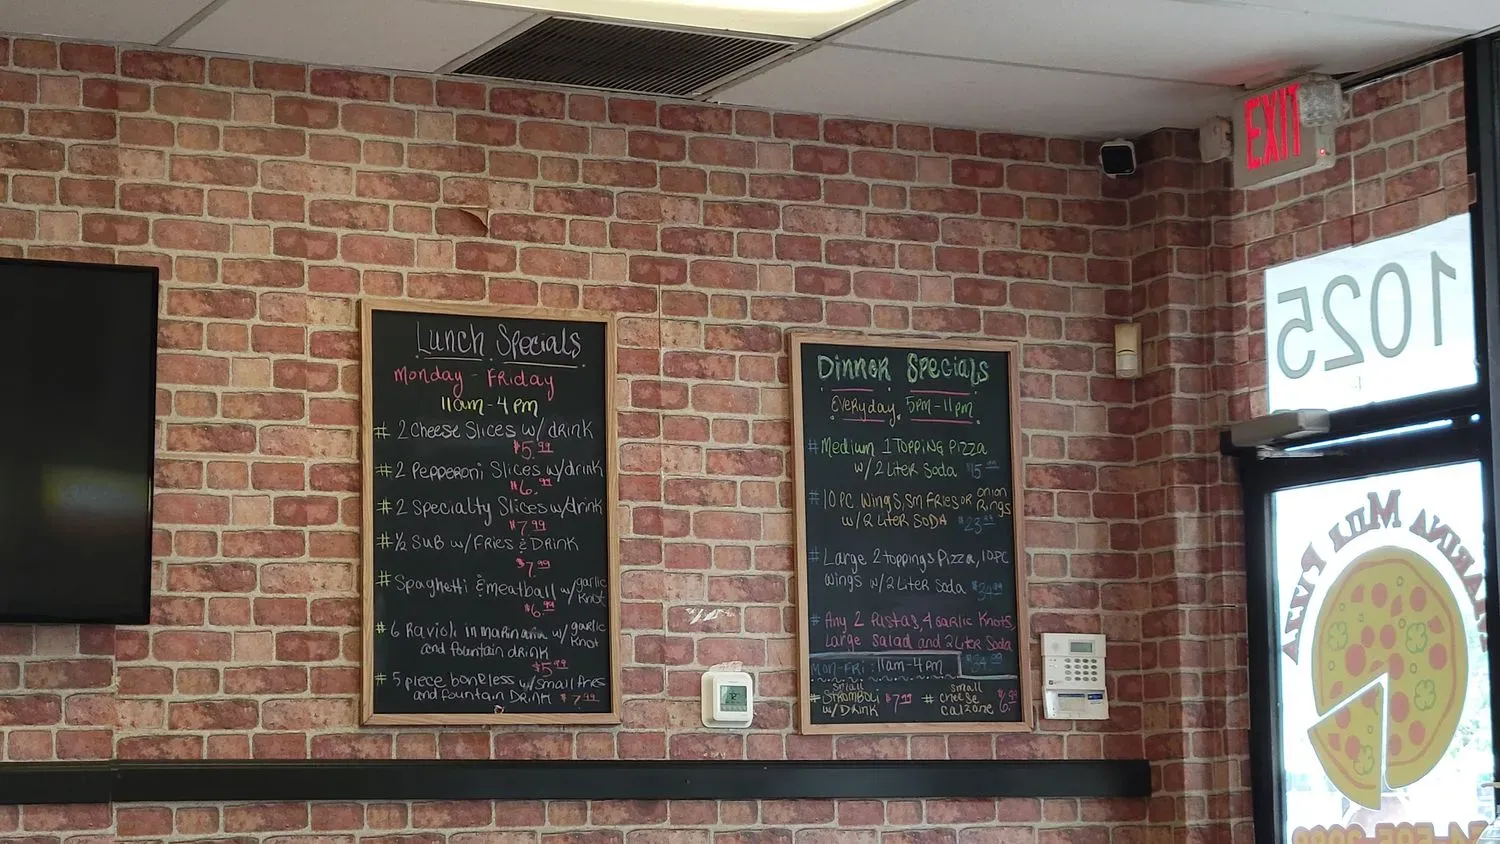 Lunch Specials
Monday - Friday
11am - 4pm
# 2 Cheese Slices w/ drink
$5.99
# 2 Pepperoni Slices w/drink
$6.99
# 2 Specialty Slices w/drink
$7.99
# ½ Sub w/ Fries & Drink
$7.99
# Spaghetti & meatball w/ garlic knot
$6.99
# 6 Ravioli in marinara w/ garlic knot
and fountain drink
$5.99
# 5 piece boneless w/ small fries
and fountain Drink $7.99
Dinner Specials
Everyday, 5pm - 11pm
# Medium 1 Topping Pizza
w/ 2 Liter Soda
# 10 PC Wings, Sm Fries or onion Rings
w/ 2 Liter SODA $23.99
# Large 2 toppings Pizza, 10 PC
wings w/ 2 Liter Soda $34.99
# Any 2 Pastas, 4 Garlic Knots,
Large Salad and 2 Liter Soda
$34.99
Mon-Fri: 11am - 4pm
# small STROMBOLI w/ Drink $7.99
# small cheese calzone $6.99
EXIT
1025
MARINA MILL PIZZA